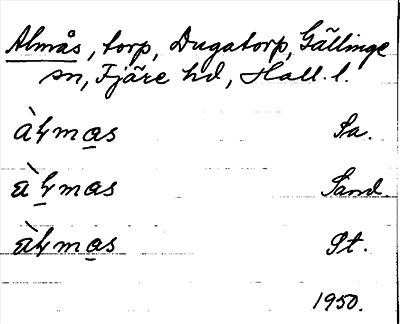 Almås, torp, Dugatorp, Gällinge
sn, Fjäre hd, Hall. l.
àl̥mas Sa.
àl̥mas Sand.
àl̥mas St.
1950.